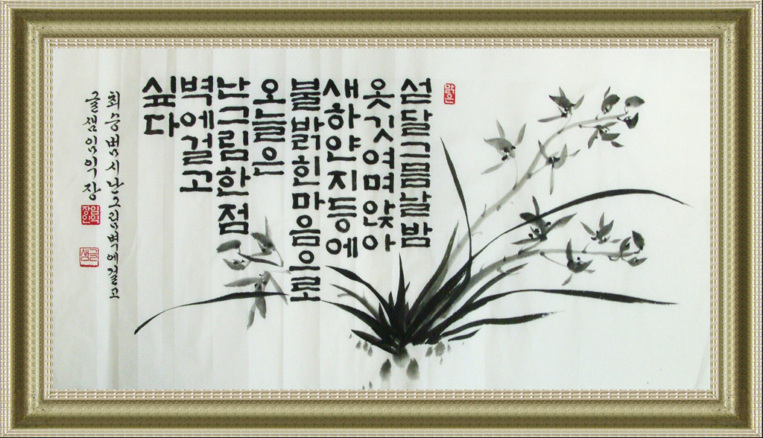 섣달그믐날밤
옷깃여며앉아
새하얀지등에
불밝힌마음으로
오늘은
난그림한점
벽에걸고
싶다
최승범시난그림벽에걸고
글샘임익장